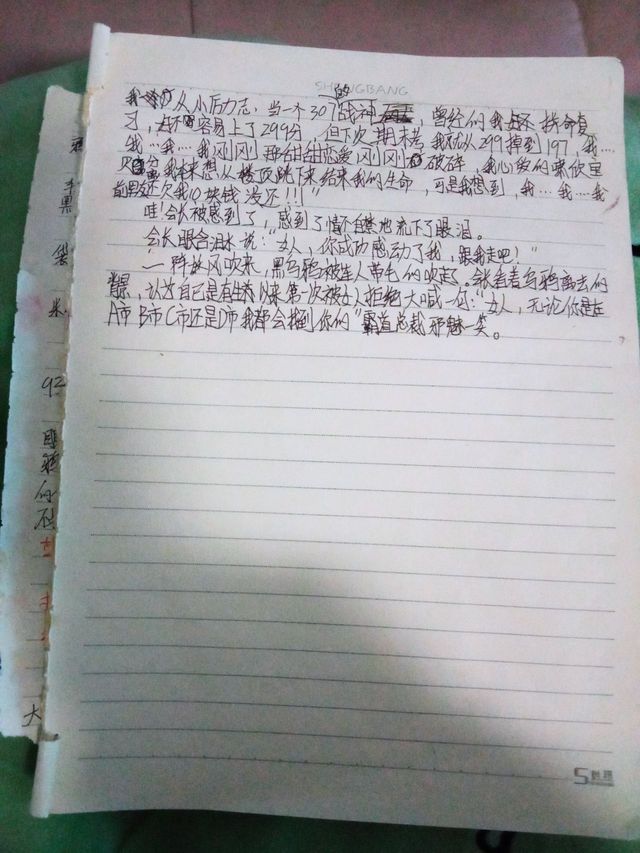 SHENGBANG
从小后力志,当一个307的战神,曾经的我拼命复
习,好容易上了299分,但下次期末考我就从299掉到197,我…
我…我…我刚刚 甜甜恋爱刚刚 破碎,我心爱的
我本来想从楼顶跳下来结束我的生命,可是我想到,我…我…我
还欠我10块钱没还!!!"
哇!会长被感到了,感到了情不自禁地流下了眼泪。
会长眼含泪水说:"女人,你成功感动了我,跟我走吧!"
一阵妖风吹来,黑乌鸦被连人带毛的吹起。会长看着乌鸦离去的
背景,认为自己是有生以来第一次被女人拒绝大喊一句:"女人,无论你是在
A市B市C市还是D市我都会找到你的"霸道总裁邪魅一笑。
黑
袋
米
93
的
大